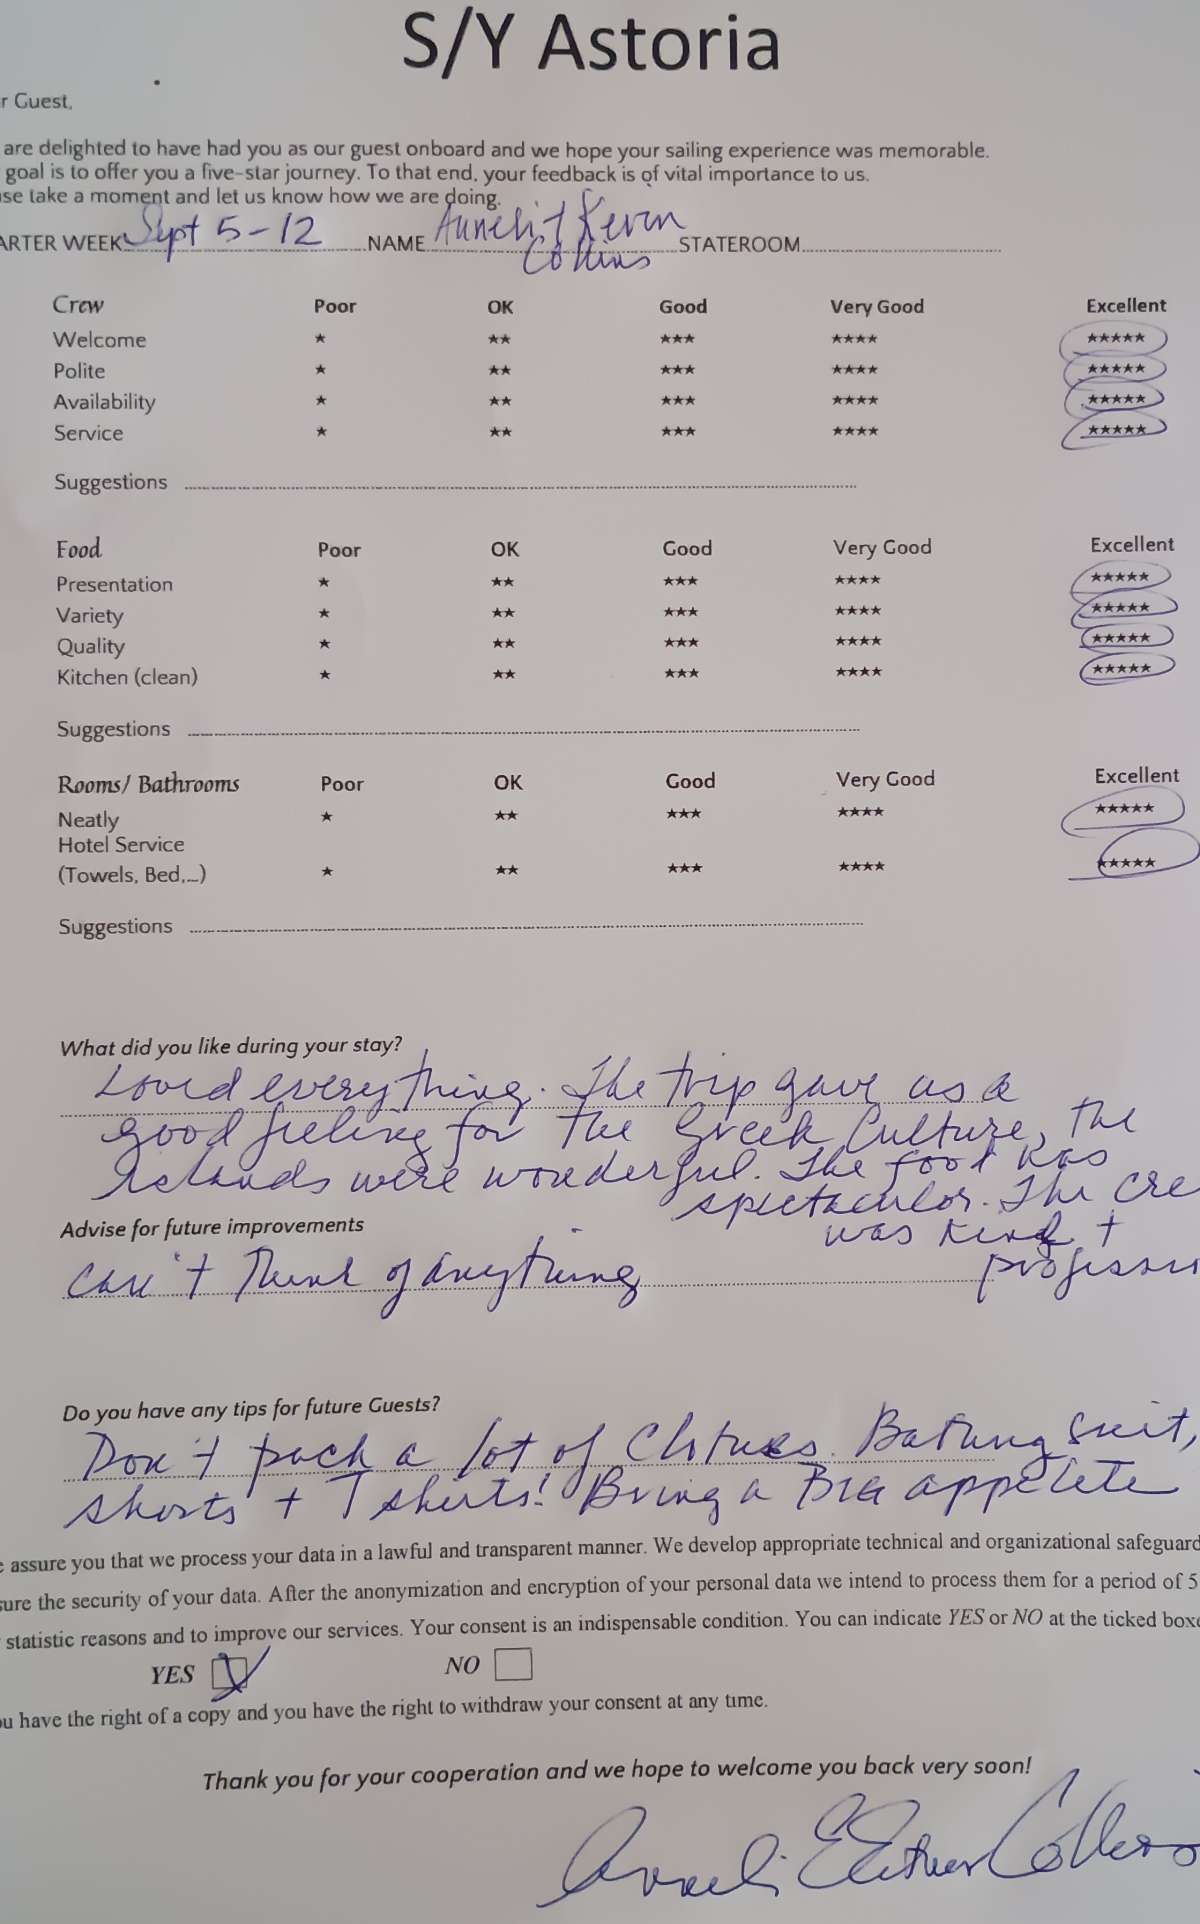 S/Y Astoria
r Guest,
are delighted to have had you as our guest onboard and we hope your sailing experience was memorable.
goal is to offer you a five-star journey. To that end, your feedback is of vital importance to us.
se take a moment and let us know how we are doing.
ARTER WEEK Sept 5-12 NAME Anneli + Kevin STATEROOM
Collins
Crew Poor OK Good Very Good Excellent
Welcome ★ ★★ ★★★ ★★★★ ★★★★★
Polite ★ ★★ ★★★ ★★★★ ★★★★★
Availability ★ ★★ ★★★ ★★★★ ★★★★★
Service ★ ★★ ★★★ ★★★★ ★★★★★
Suggestions
Food Poor OK Good Very Good Excellent
Presentation ★ ★★ ★★★ ★★★★ ★★★★★
Variety ★ ★★ ★★★ ★★★★ ★★★★★
Quality ★ ★★ ★★★ ★★★★ ★★★★★
Kitchen (clean) ★ ★★ ★★★ ★★★★ ★★★★★
Suggestions
Rooms/ Bathrooms Poor OK Good Very Good Excellent
Neatly ★ ★★ ★★★ ★★★★ ★★★★★
Hotel Service
(Towels, Bed,...) ★ ★★ ★★★ ★★★★ ★★★★★
Suggestions
What did you like during your stay?
Loved everything. The trip gave us a
good feeling for the Greek Culture, the
islands were wonderful. The food was
spectacular. The cre
was kind +
profession
Advise for future improvements
can't think of anything
Do you have any tips for future Guests?
Don't pack a lot of clothes. Bathing suit,
shorts + T shirts! Bring a BIG appetete
e assure you that we process your data in a lawful and transparent manner. We develop appropriate technical and organizational safeguard
sure the security of your data. After the anonymization and encryption of your personal data we intend to process them for a period of 5
statistic reasons and to improve our services. Your consent is an indispensable condition. You can indicate YES or NO at the ticked boxe
YES NO
ou have the right of a copy and you have the right to withdraw your consent at any time.
Thank you for your cooperation and we hope to welcome you back very soon!
Anneli Collins